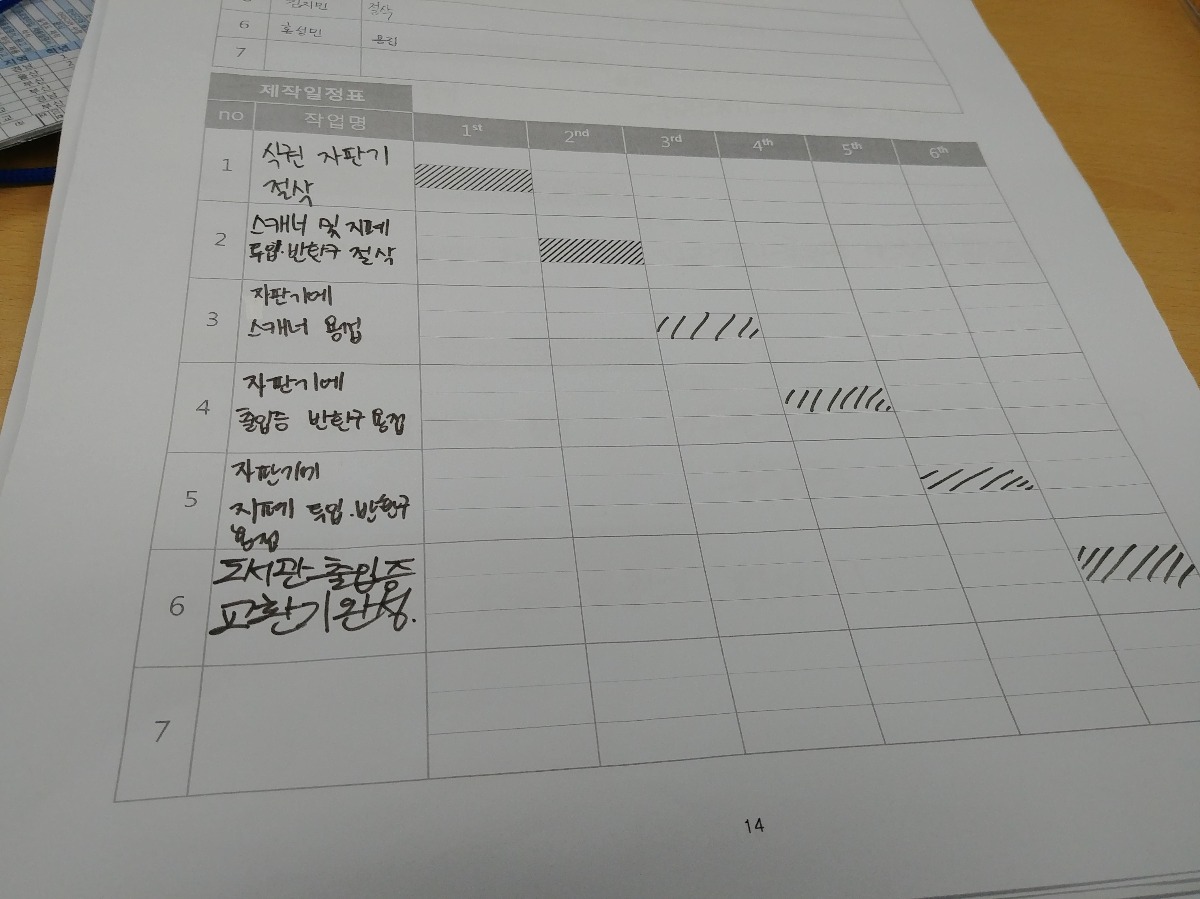 절삭
6 홍성민 용접
7
제작일정표
no 작업명 1st 2nd 3rd 4th 5th 6th
1 식권 자판기
절삭
2 스캐너 및 지폐
투입·반환구 절삭
3 자판기에
스캐너 용접
4 자판기에
출입증 반환구 용접
5 자판기에
지폐 투입·반환구
용접
6 도서관 출입증
교환기 완성.
7
14